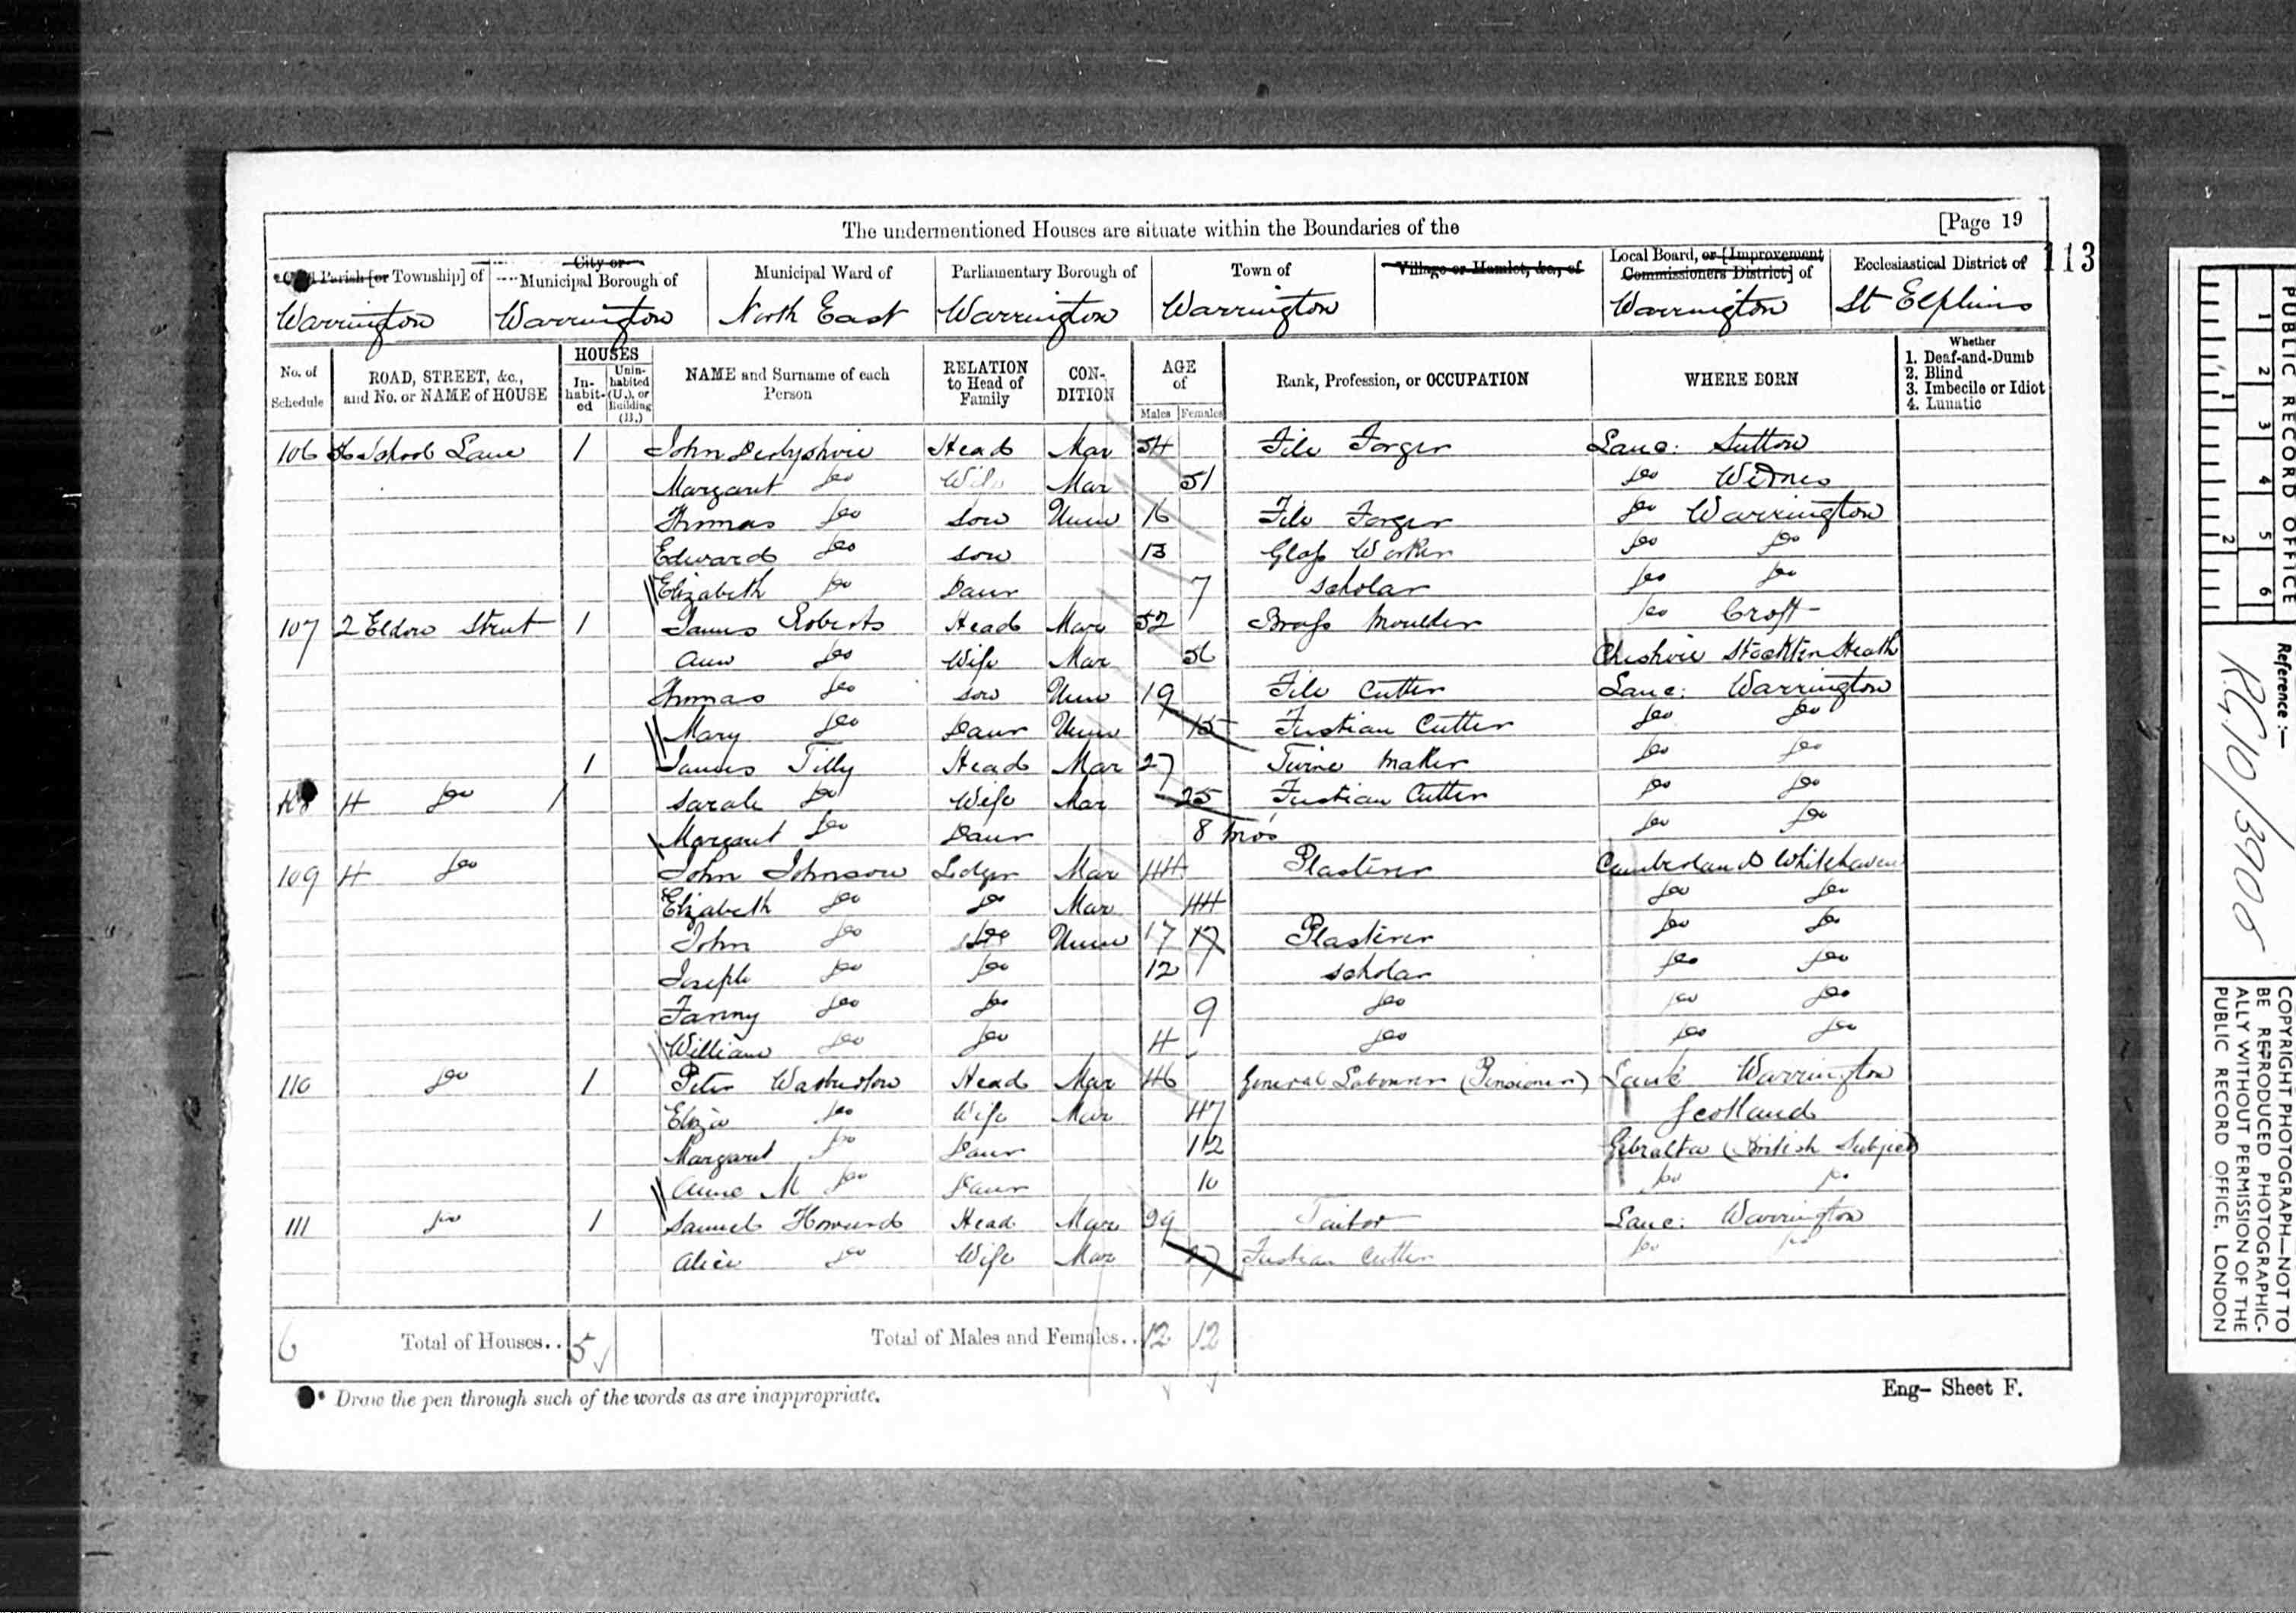 The undermentioned Houses are situate within the Boundaries of the [Page 19
113
Parish [or Township] of
City or Municipal Borough of
Municipal Ward of
Parliamentary Borough of
Town of
Village or Hamlet, &c., of
Local Board, or [Improvement Commissioners District] of
Ecclesiastical District of
Warrington Warrington North East Warrington Warrington Warrington St Elphins
No. of Schedule
ROAD, STREET, &c., and No. or NAME of HOUSE
HOUSES
In-habit-ed
Unin-habited (U.), or Building (B.)
NAME and Surname of each Person
RELATION to Head of Family
CON-DITION
AGE of
Males Females
Rank, Profession, or OCCUPATION
WHERE BORN
Whether
1. Deaf-and-Dumb
2. Blind
3. Imbecile or Idiot
4. Lunatic
106 School Lane 1 John Derbyshire Head Mar 54 File Forger Lanc: Sutton
Margaret do Wife Mar 51 do Widnes
Thomas do Son Unm 16 File Forger do Warrington
Edward do Son 13 Glass Worker do do
Elizabeth do Daur 7 Scholar do do
107 2 Eldon Street 1 James Roberts Head Mar 52 Brass Moulder do Croft
Ann do Wife Mar 56 Cheshire Stockton Heath
Thomas do Son Unm 19 File Cutter Lanc: Warrington
Mary do Daur Unm 15 Fustian Cutter do do
1 James Tilly Head Mar 27 Twine Maker do do
108 4 do 1 Sarah do Wife Mar 25 Fustian Cutter do do
Margaret do Daur 8 mos do do
109 4 do John Johnson Lodger Mar 44 Plasterer Cumberland Whitehaven
Elizabeth do do Mar 44 do do
John do do Unm 17 17 Plasterer do do
Joseph do do 12 Scholar do do
Fanny do do 9 do do do
William do do 4 do do do
110 do 1 Peter Warburton Head Mar 46 General Labourer (Pensioner) Lanc Warrington
Eliza do Wife Mar 47 Scotland
Margaret do Daur 12 Gibralta (British Subject)
Anne M do Daur 10 do do
111 do 1 Samuel Howard Head Mar 29 Tailor Lanc: Warrington
Alice do Wife Mar 27 Fustian Cutter do do
6 Total of Houses.. 5 Total of Males and Females.. 12 12
* Draw the pen through such of the words as are inappropriate.
Eng- Sheet F.
PUBLIC RECORD OFFICE
1 2 3 4 5 6
1 2
Reference :—
RG 10/3906
COPYRIGHT PHOTOGRAPH—NOT TO
BE REPRODUCED PHOTOGRAPHIC-
ALLY WITHOUT PERMISSION OF THE
PUBLIC RECORD OFFICE, LONDON